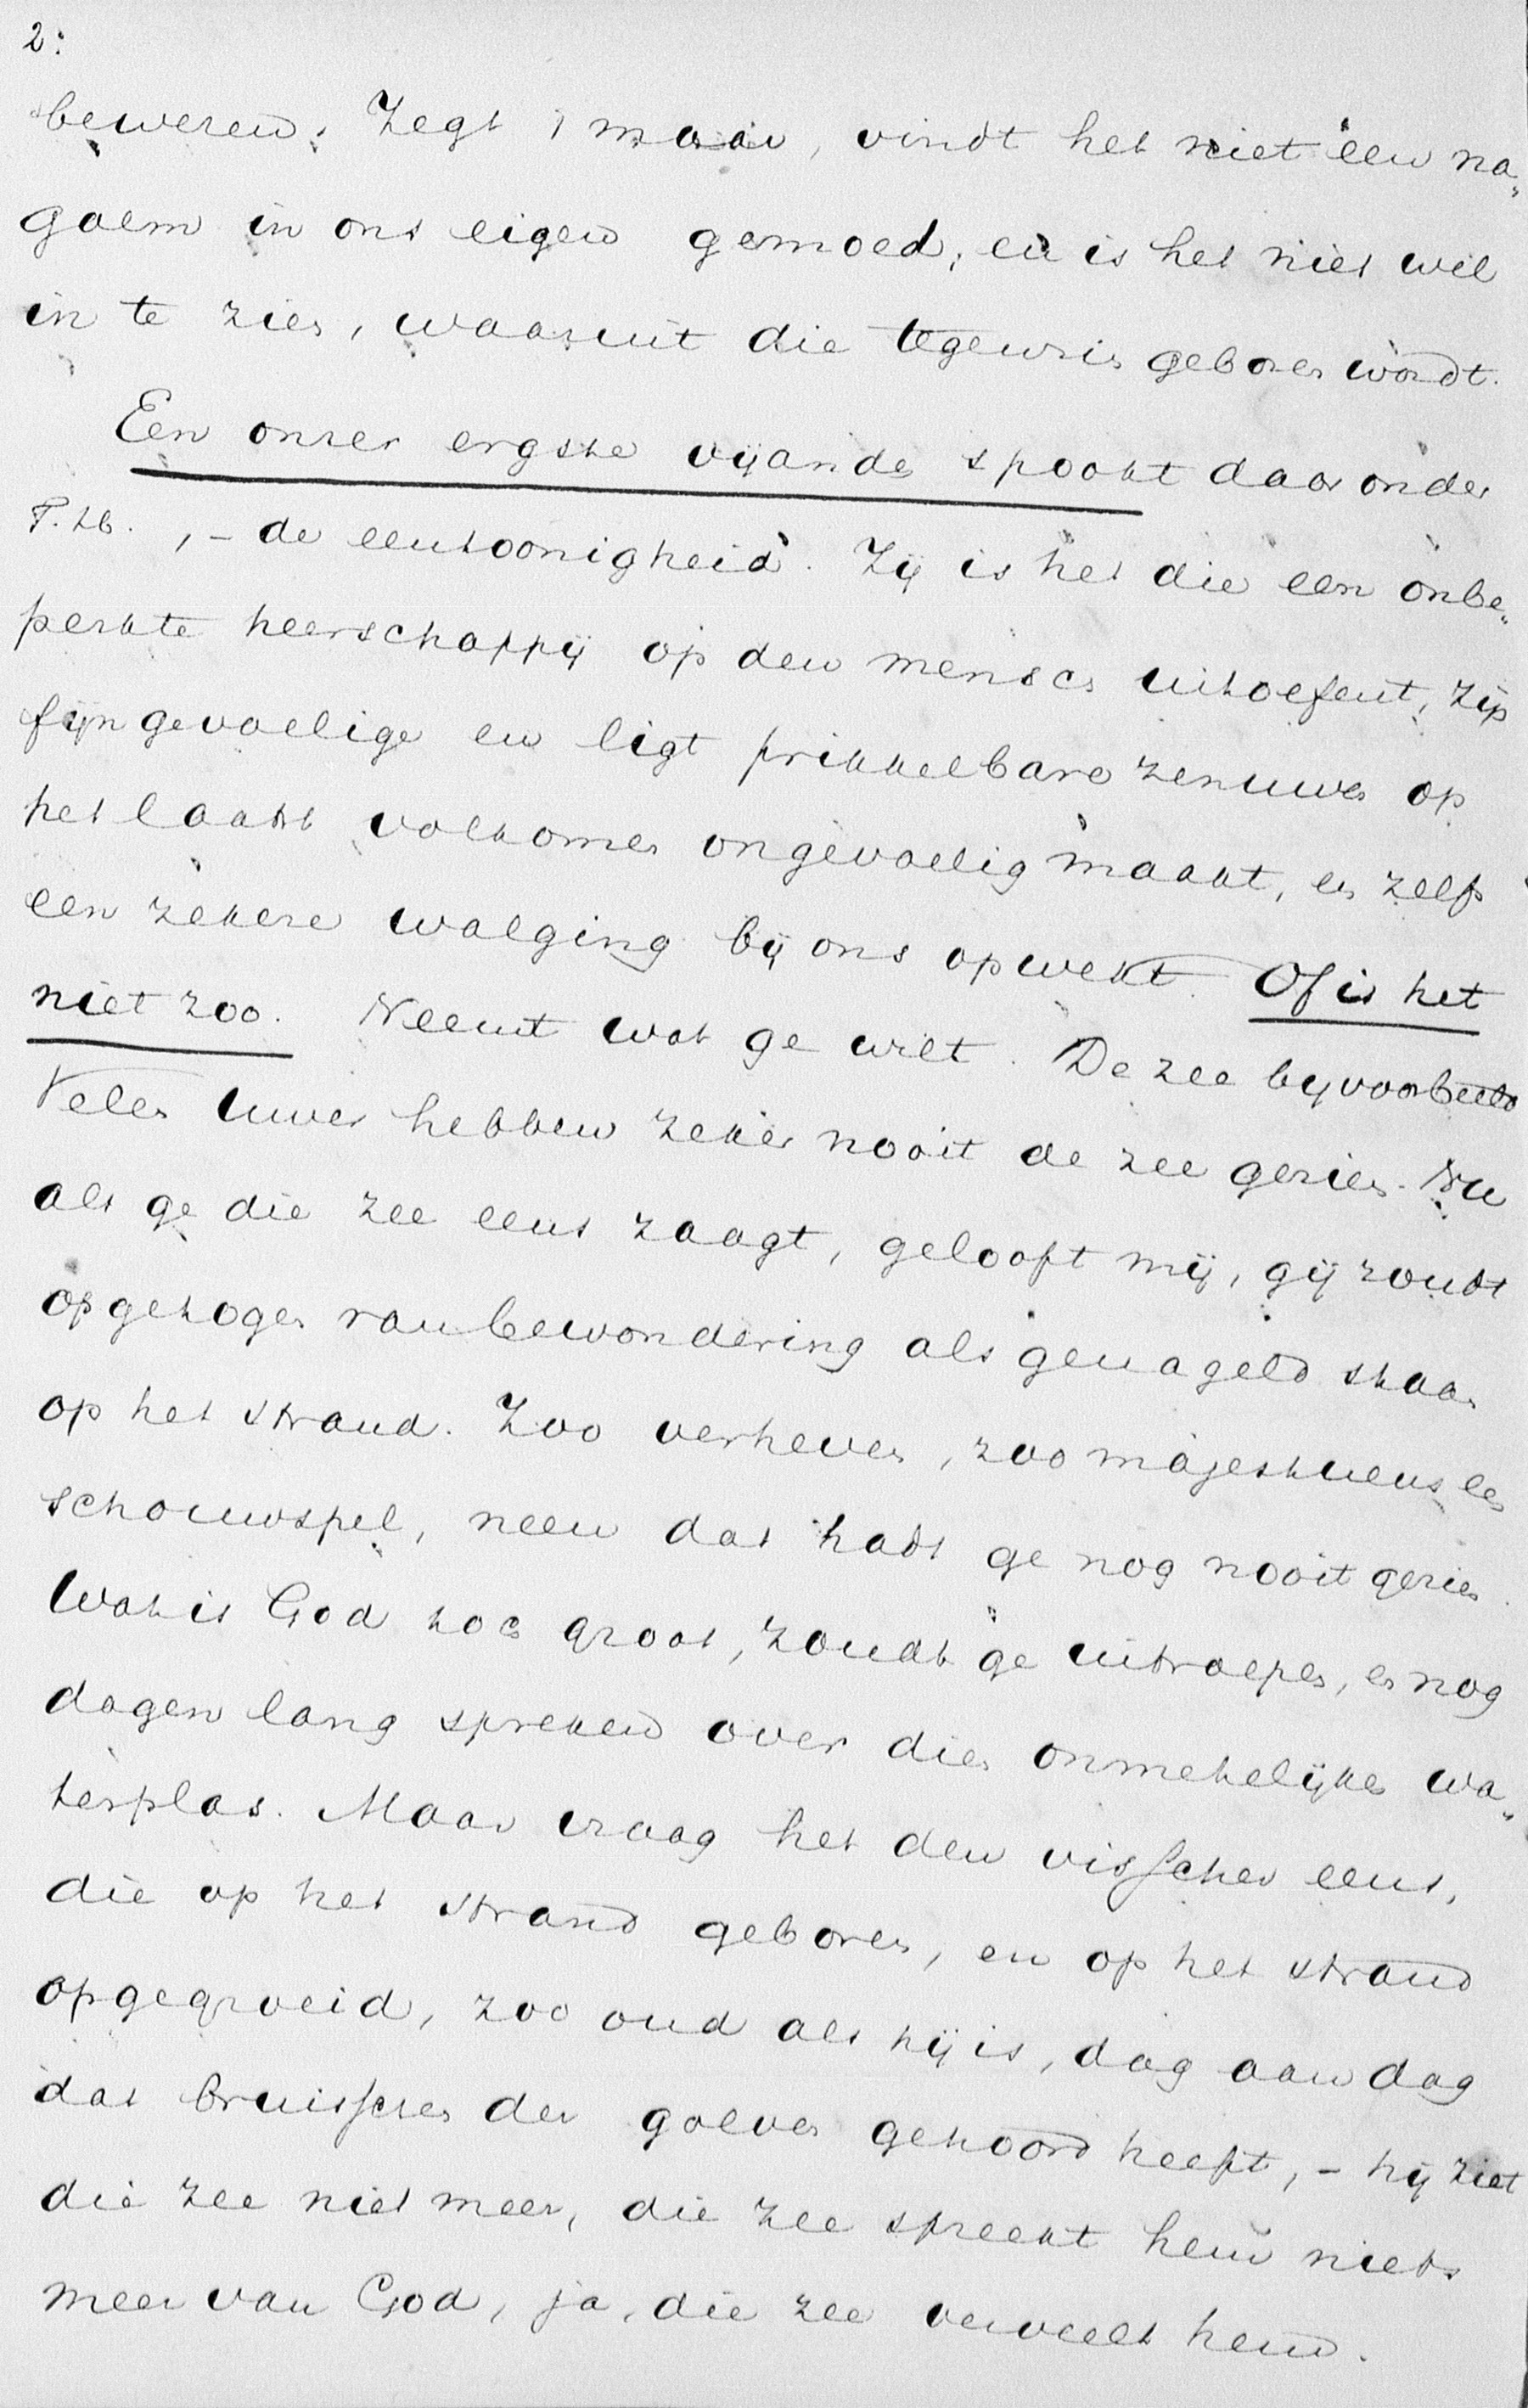 2:
beweren: Zegt 't maar, vindt het niet een na„
galm in ons eigen gemoed; en is het niet wel
in te zien, waaruit die tegenzin geboren wordt.
Een onzer ergste vijanden spookt daaronder
T. Lb. , – de eentoonigheid. Zij is het die een onbe„
perkte heerschappij op den mensch uitoefent, zijn
fijngevoelige en ligt prikkelbare zenuwen op
het laatst volkomen ongevoelig maakt, en zelfs
een zekere walging bij ons opwekt. Of is het
niet zoo. Neemt wat ge wilt. De zee bijvoorbeeld
Velen uwer hebben zeker nooit de zee gezien. Nu
als ge die zee eens zaagt, gelooft mij, gij zoudt
opgetogen van bewondering als genageld staan
op het strand. Zoo verheven, zoo majestueus een
schouwspel, neen dat hadt ge nog nooit gezien.
Wat is God toch groot, zoudt ge uitroepen, en nog
dagen lang spreken over dien onmetelijken wa„
terplas. Maar vraag het den visscher eens,
die op het strand geboren, en op het strand
opgegroeid, zoo oud als hij is, dag aan dag
dat bruisschen der golven gehoord heeft, – hij ziet
die zee niet meer, die zee spreekt hem niets
meer van God, ja, die zee verveelt hem.